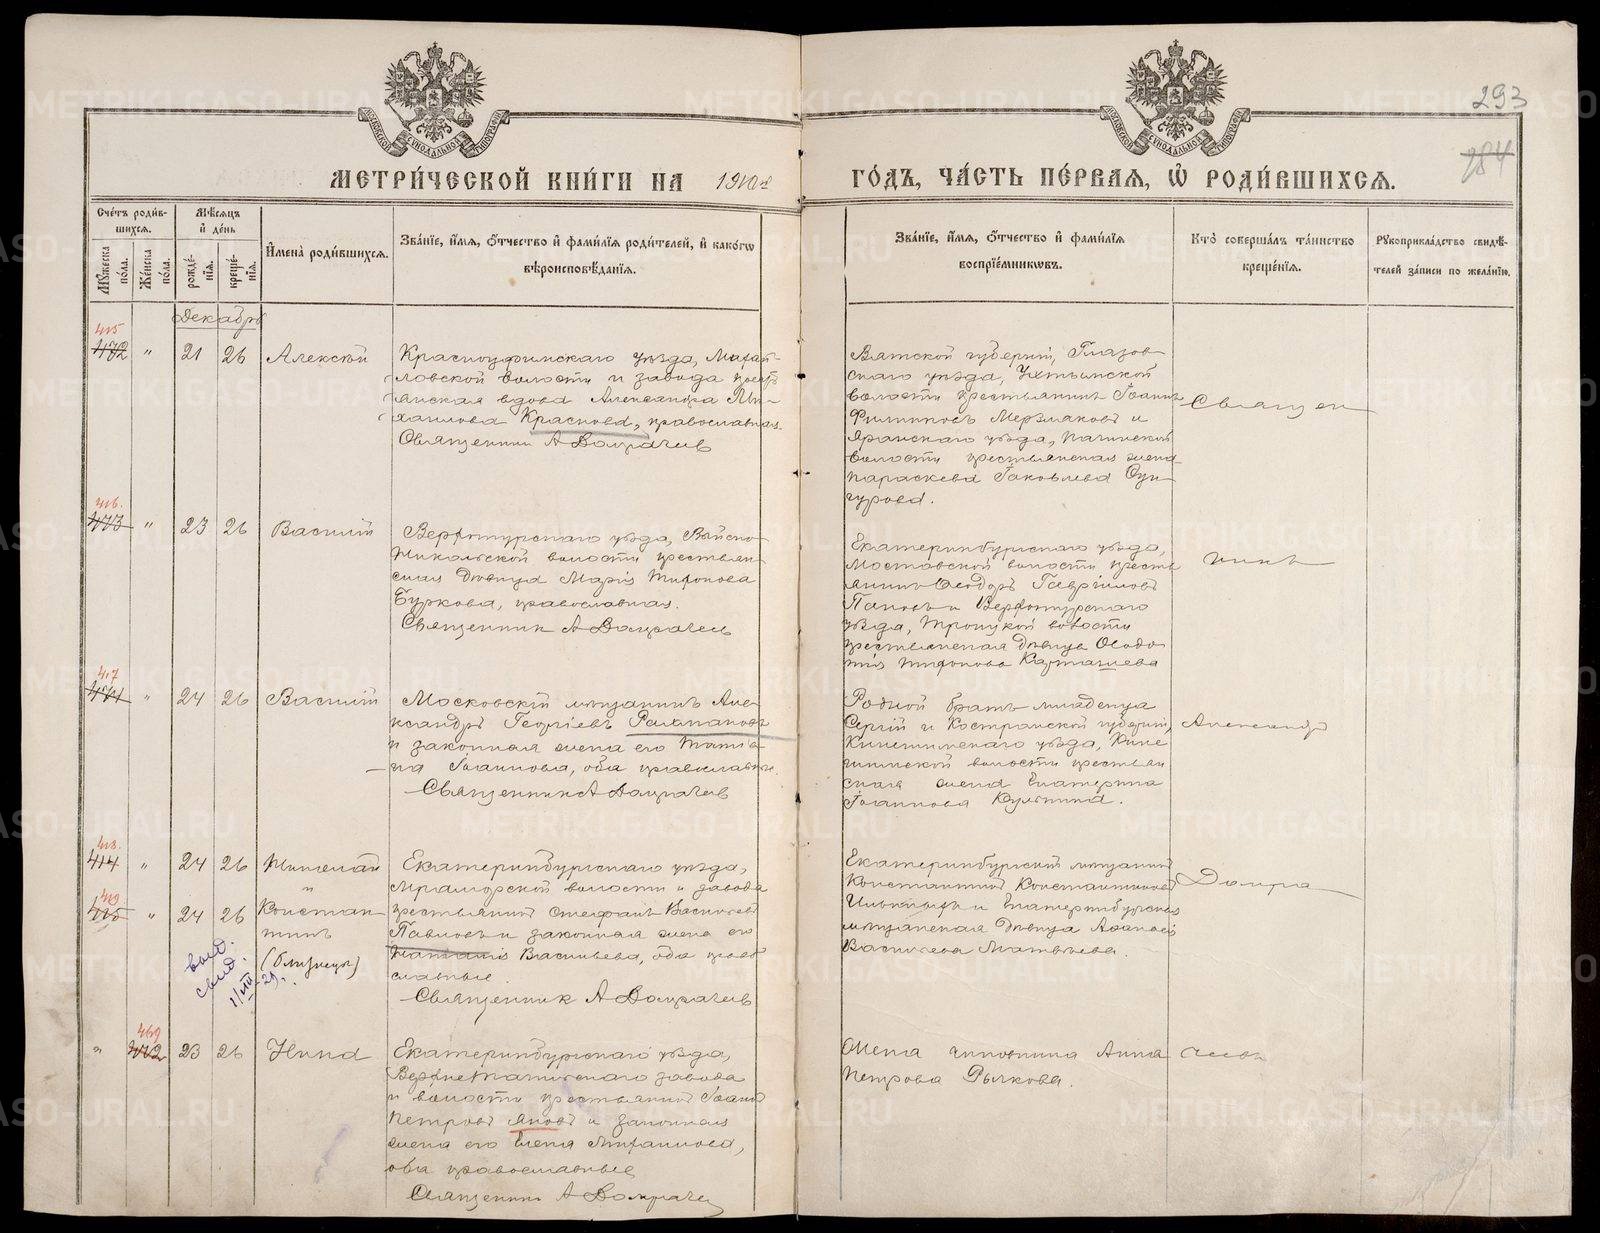 293
284
МЕТРИ́ЧЕСКОЙ КНИ́ГИ НА 1910й
ГО́ДЪ, ЧА́СТЬ ПЕ́РВАЯ, Ѡ҆ РОДИ́ВШИХСЯ.
Сче́тъ роди́в-
шихся.
Му́жеска по́ла.
Же́нска по́ла.
Мѣ́сяцъ
и҆ де́нь
рожде́-
нїя.
креще́-
нїя.
И҆мена̀ роди́вшихся.
Зва́нїе, и҆́мя, ѻ҆́тчество и҆ фами́лїя роди́телей, и҆ како́гѡ
вѣроисповѣ́данїя.
Зва́нїе, и҆́мя, ѻ҆́тчество и҆ фами́лїя
воспрїе́мникѡвъ.
Кто̀ соверша́лъ та́инство
креще́нїя.
Рꙋкоприкла́дство свидѣ́-
телей за́писи по жела́нїю.
Декабрь
415
472 " 21 26 Алексѣй
Красноуфимскаго уѣзда, Михай-
ловской волости и завода крест
янская вдова Александра Ми-
хаилова Краснова, православная.
Священник А Домрачев
Вятской губерніи, Глазов-
скаго уѣзда,
волости крестьянинъ Іоаннъ
Филипповъ Мерзляковъ и
Яранскаго уѣзда,
волости крестьянская жена
Параскева Іаковлева
Священ
416.
473 " 23 26 Василій
Верхотурскаго уѣзда, Выйско-
Никольской волости крестьян-
ская дѣвица Марія Тихонова
Буркова, православная.
Священник А Домрачев
Екатеринбургскаго уѣзда,
Мостовской волости кресть
янинъ Ѳеодоръ Гавріиловъ
Пановъ и Верхотурскаго
уѣзда, Троицкой волости
крестьянская дѣвица Ѳеодо-
сія Тихонова Карташева
никъ
417
" 24 26 Василій
Московскій мѣщанинъ Але-
ксандръ Георгіевъ Рахмановъ
и законная жена его Татіа-
на Іоаннова, оба православные.
Священник А Домрачев
Родной братъ младенца
Сергій и Костромской губерніи,
Кинешемскаго уѣзда, Кине
шемской волости крестьян
ская жена Екатерина
Іоаннова
Александръ
418.
414 " 24 26 Николай
и
419
415 " 24 26 Констан-
тинъ
(близнецы)
выд.
свид.
1/VIII 29.
Екатеринбургскаго уѣзда,
Мраморской волости и завода
крестьянинъ Стефанъ Васильевъ
Павловъ и законная жена его
Наталія Васильева, оба право
славные
Священник А Домрачев
Екатеринбургскій мѣщанинъ
Константинъ Константиновъ
и Екатеринбургская
мѣщанская дѣвица Аѳанасія
Васильева Матвѣева.
Домра
469
" 23 26 Нина
Екатеринбургскаго уѣзда,
Верхнетагильскаго завода
и волости крестьянинъ Іоаннъ
Петровъ Яковъ и законная
жена его Елена Михаилова,
оба православные
Священник А Домрачев
Жена чиновника Анна
Петрова Рылкова.
чевъ